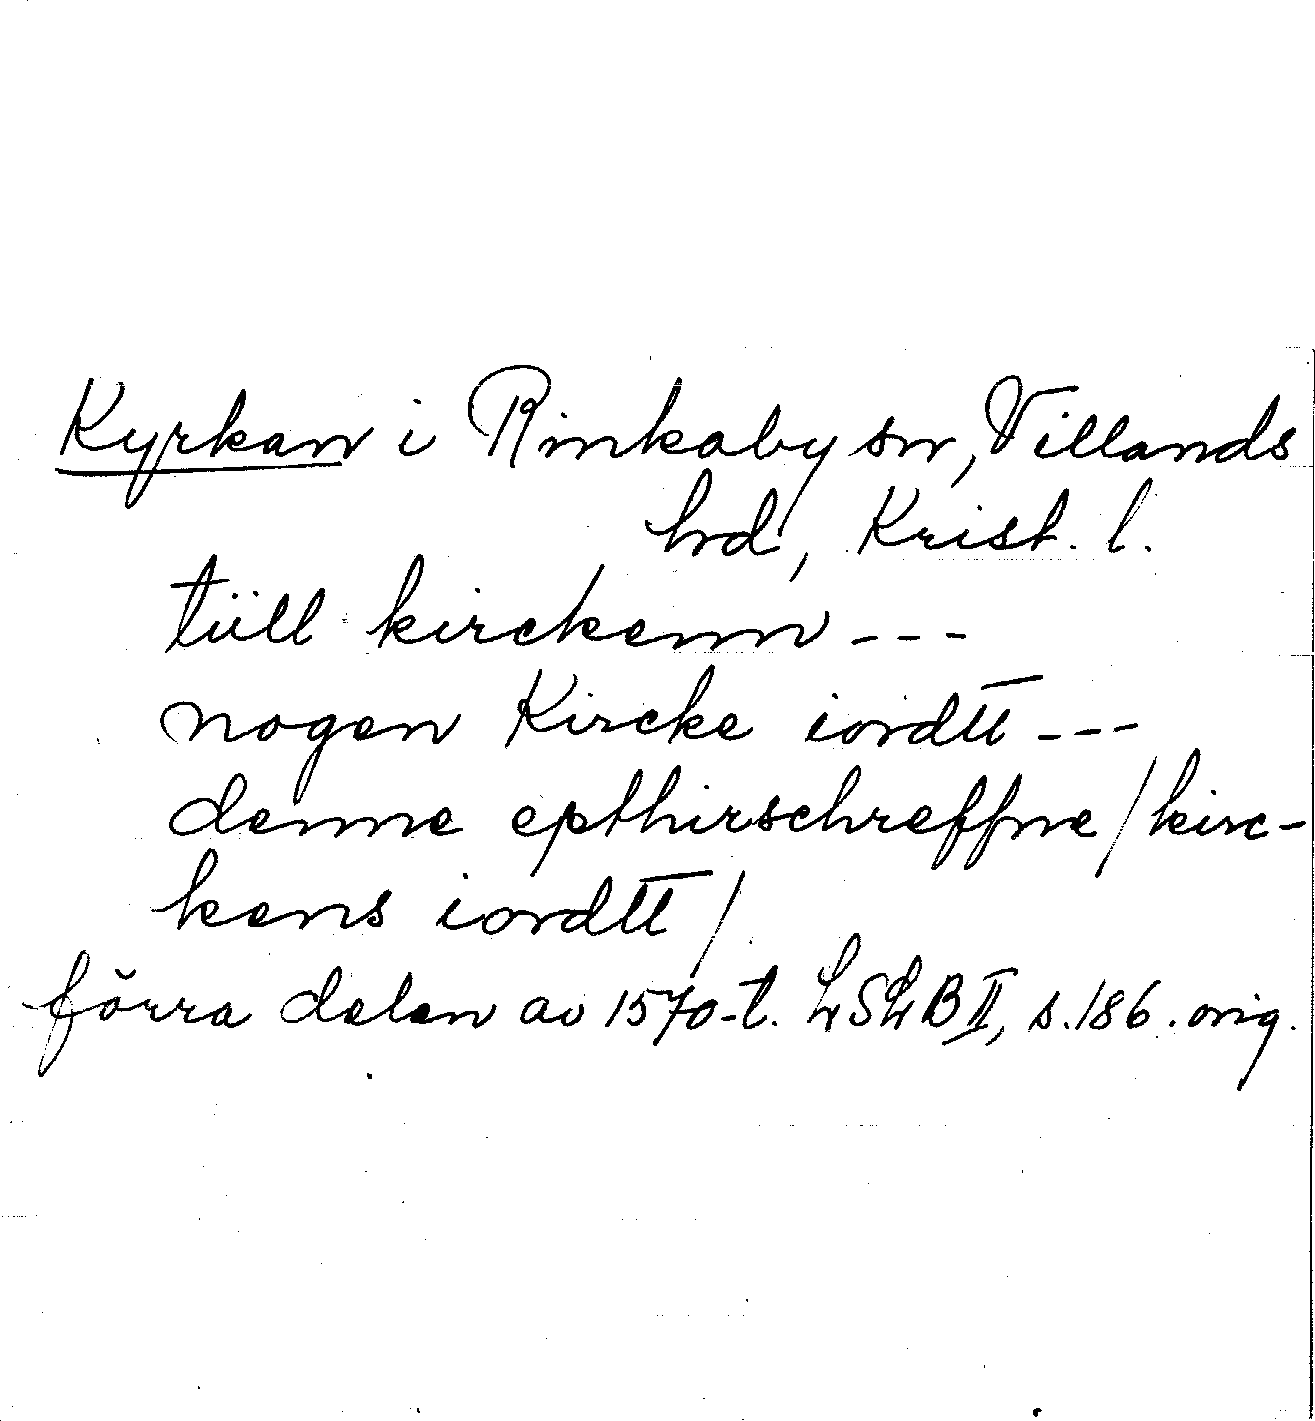 Kyrkan i Rinkaby sn, Villands
hd, Krist. l.
tüll kirckenn ---
nogen Kircke iordtt ---
denne epthirschreffne / kirc-
kens iordtt /
förra delen av 1570-t. LSLB II, s. 186. orig.